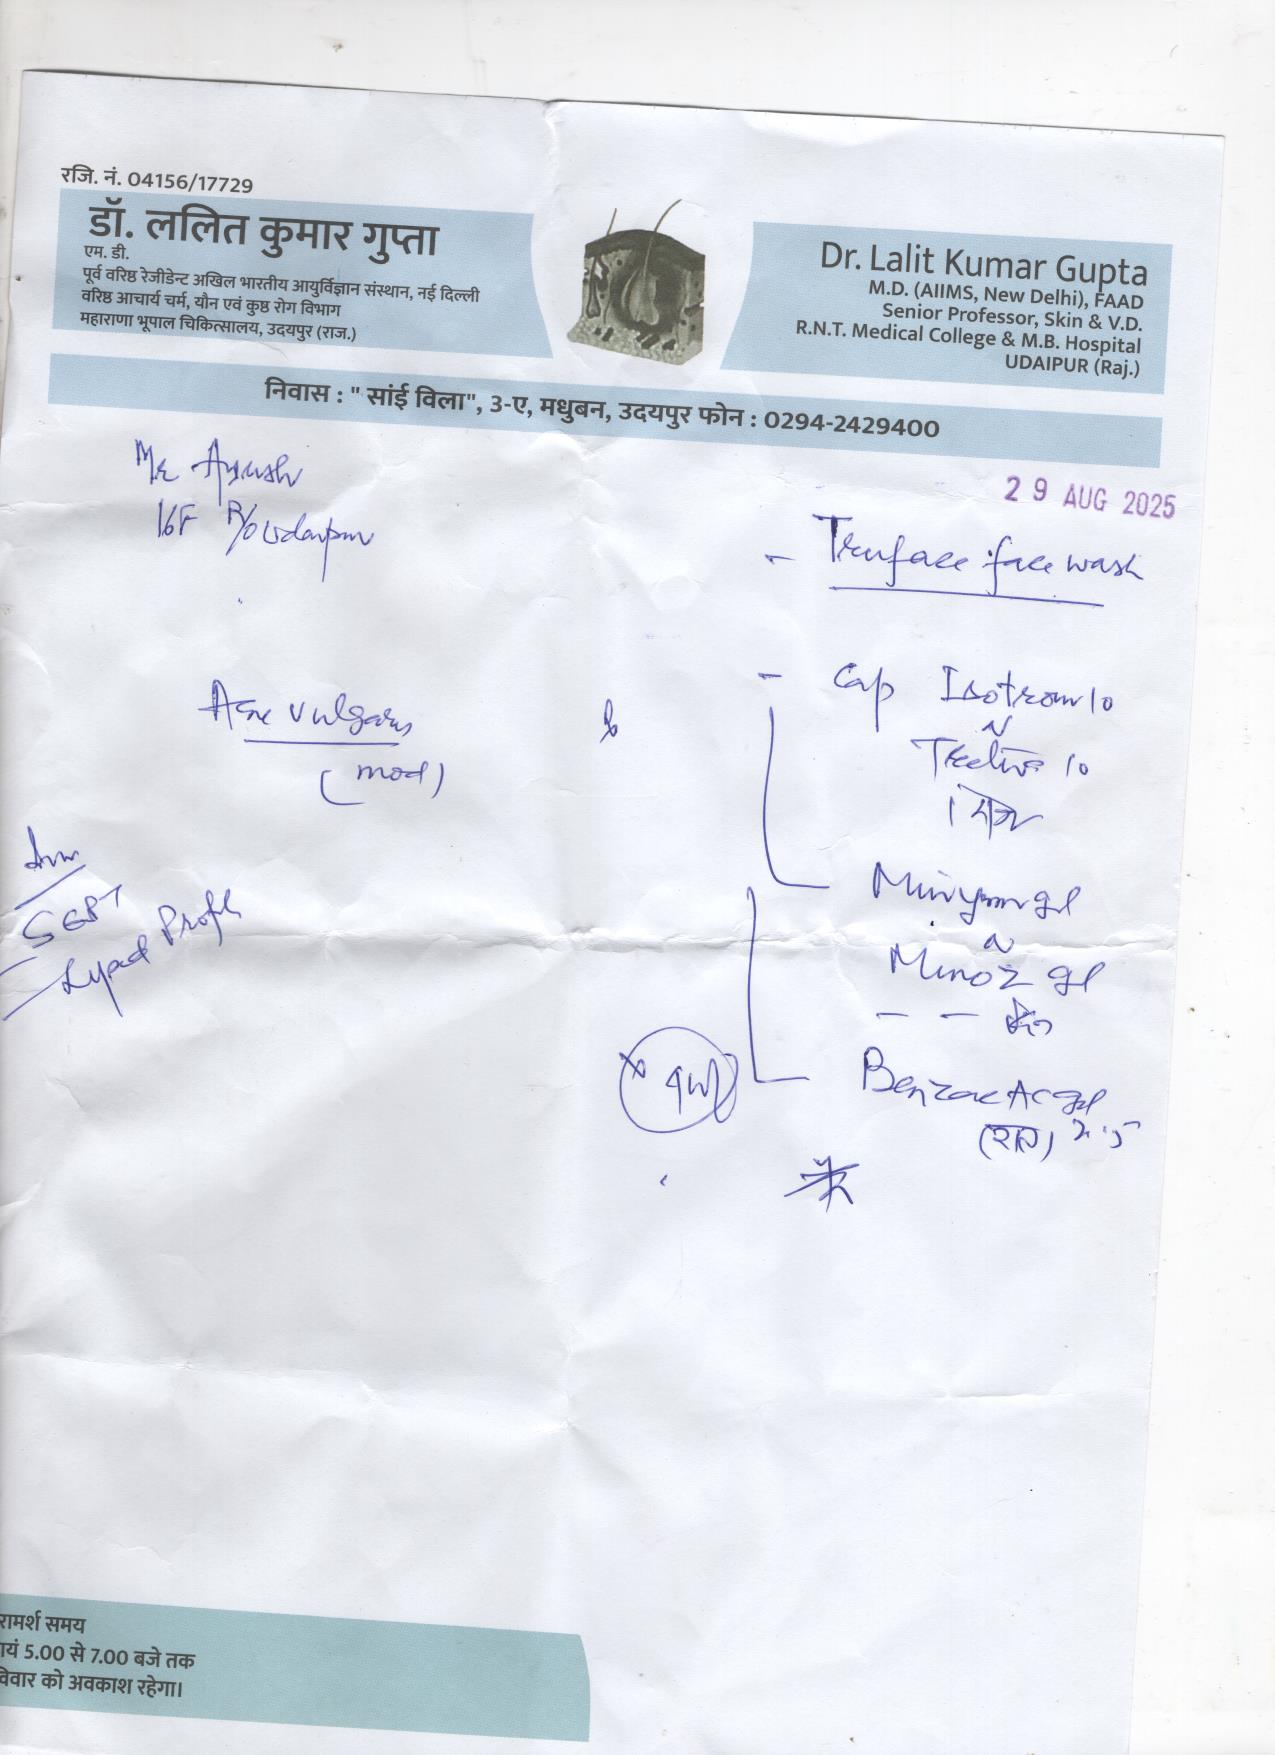 रजि. नं. 04156/17729
डॉ. ललित कुमार गुप्ता
एम. डी.
पूर्व वरिष्ठ रेजीडेन्ट अखिल भारतीय आयुर्विज्ञान संस्थान, नई दिल्ली
वरिष्ठ आचार्य चर्म, यौन एवं कुष्ठ रोग विभाग
महाराणा भूपाल चिकित्सालय, उदयपुर (राज.)
Dr. Lalit Kumar Gupta
M.D. (AIIMS, New Delhi), FAAD
Senior Professor, Skin & V.D.
R.N.T. Medical College & M.B. Hospital
UDAIPUR (Raj.)
निवास : " सांई विला", 3-ए, मधुबन, उदयपुर फोन : 0294-2429400
29 AUG 2025
Ayush
R/o Udaipur
- Truface face wash
Acne vulgaris
(mod)
- Cap Isotroin 10
10
SGPT
Lipid Profile
gel
Minoz gel
Benzac AC gel
(रात) 2.5
रामर्श समय
ायं 5.00 से 7.00 बजे तक
विवार को अवकाश रहेगा।